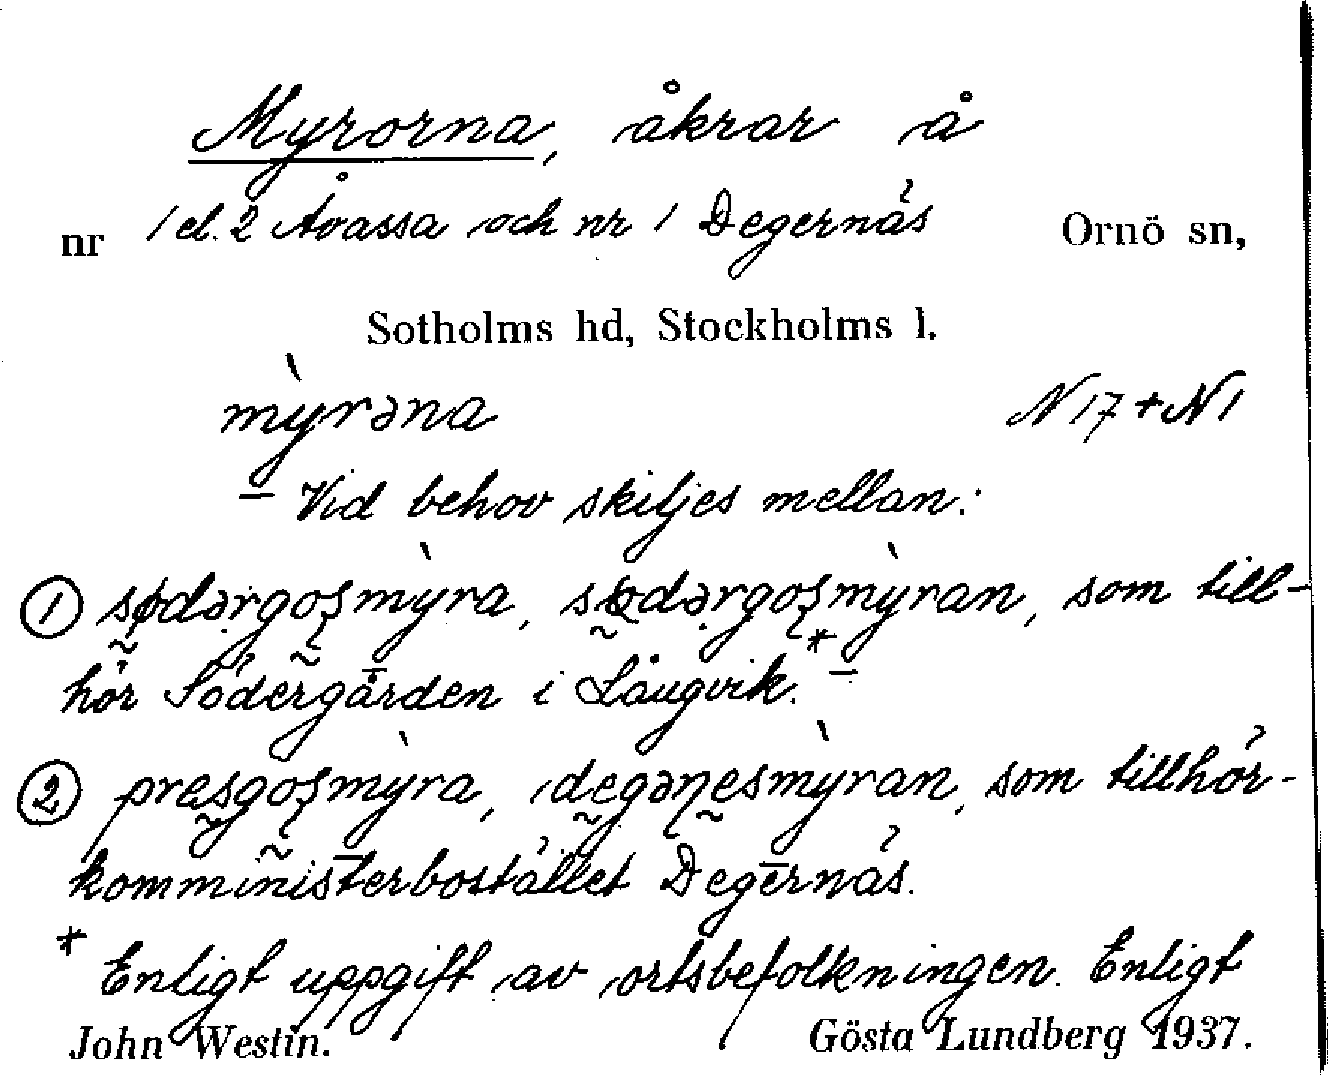 Myrorna, åkrar å
nr 1 el. 2 Åvassa och nr 1 Degernäs Ornö sn,
Sotholms hd, Stockholms l.
mỳrəna N 17 + N 1
– Vid behov skiljes mellan:
① sødərgoʂmỳra, sødərgoʂmỳran, som till-
hör Södergården i Långvik.* –
② presgoʂmỳra, degəɳesmỳran, som tillhör
komministerbostället Degernäs.
* Enligt uppgift av ortsbefolkningen. Enligt
John Westin. Gösta Lundberg 1937.